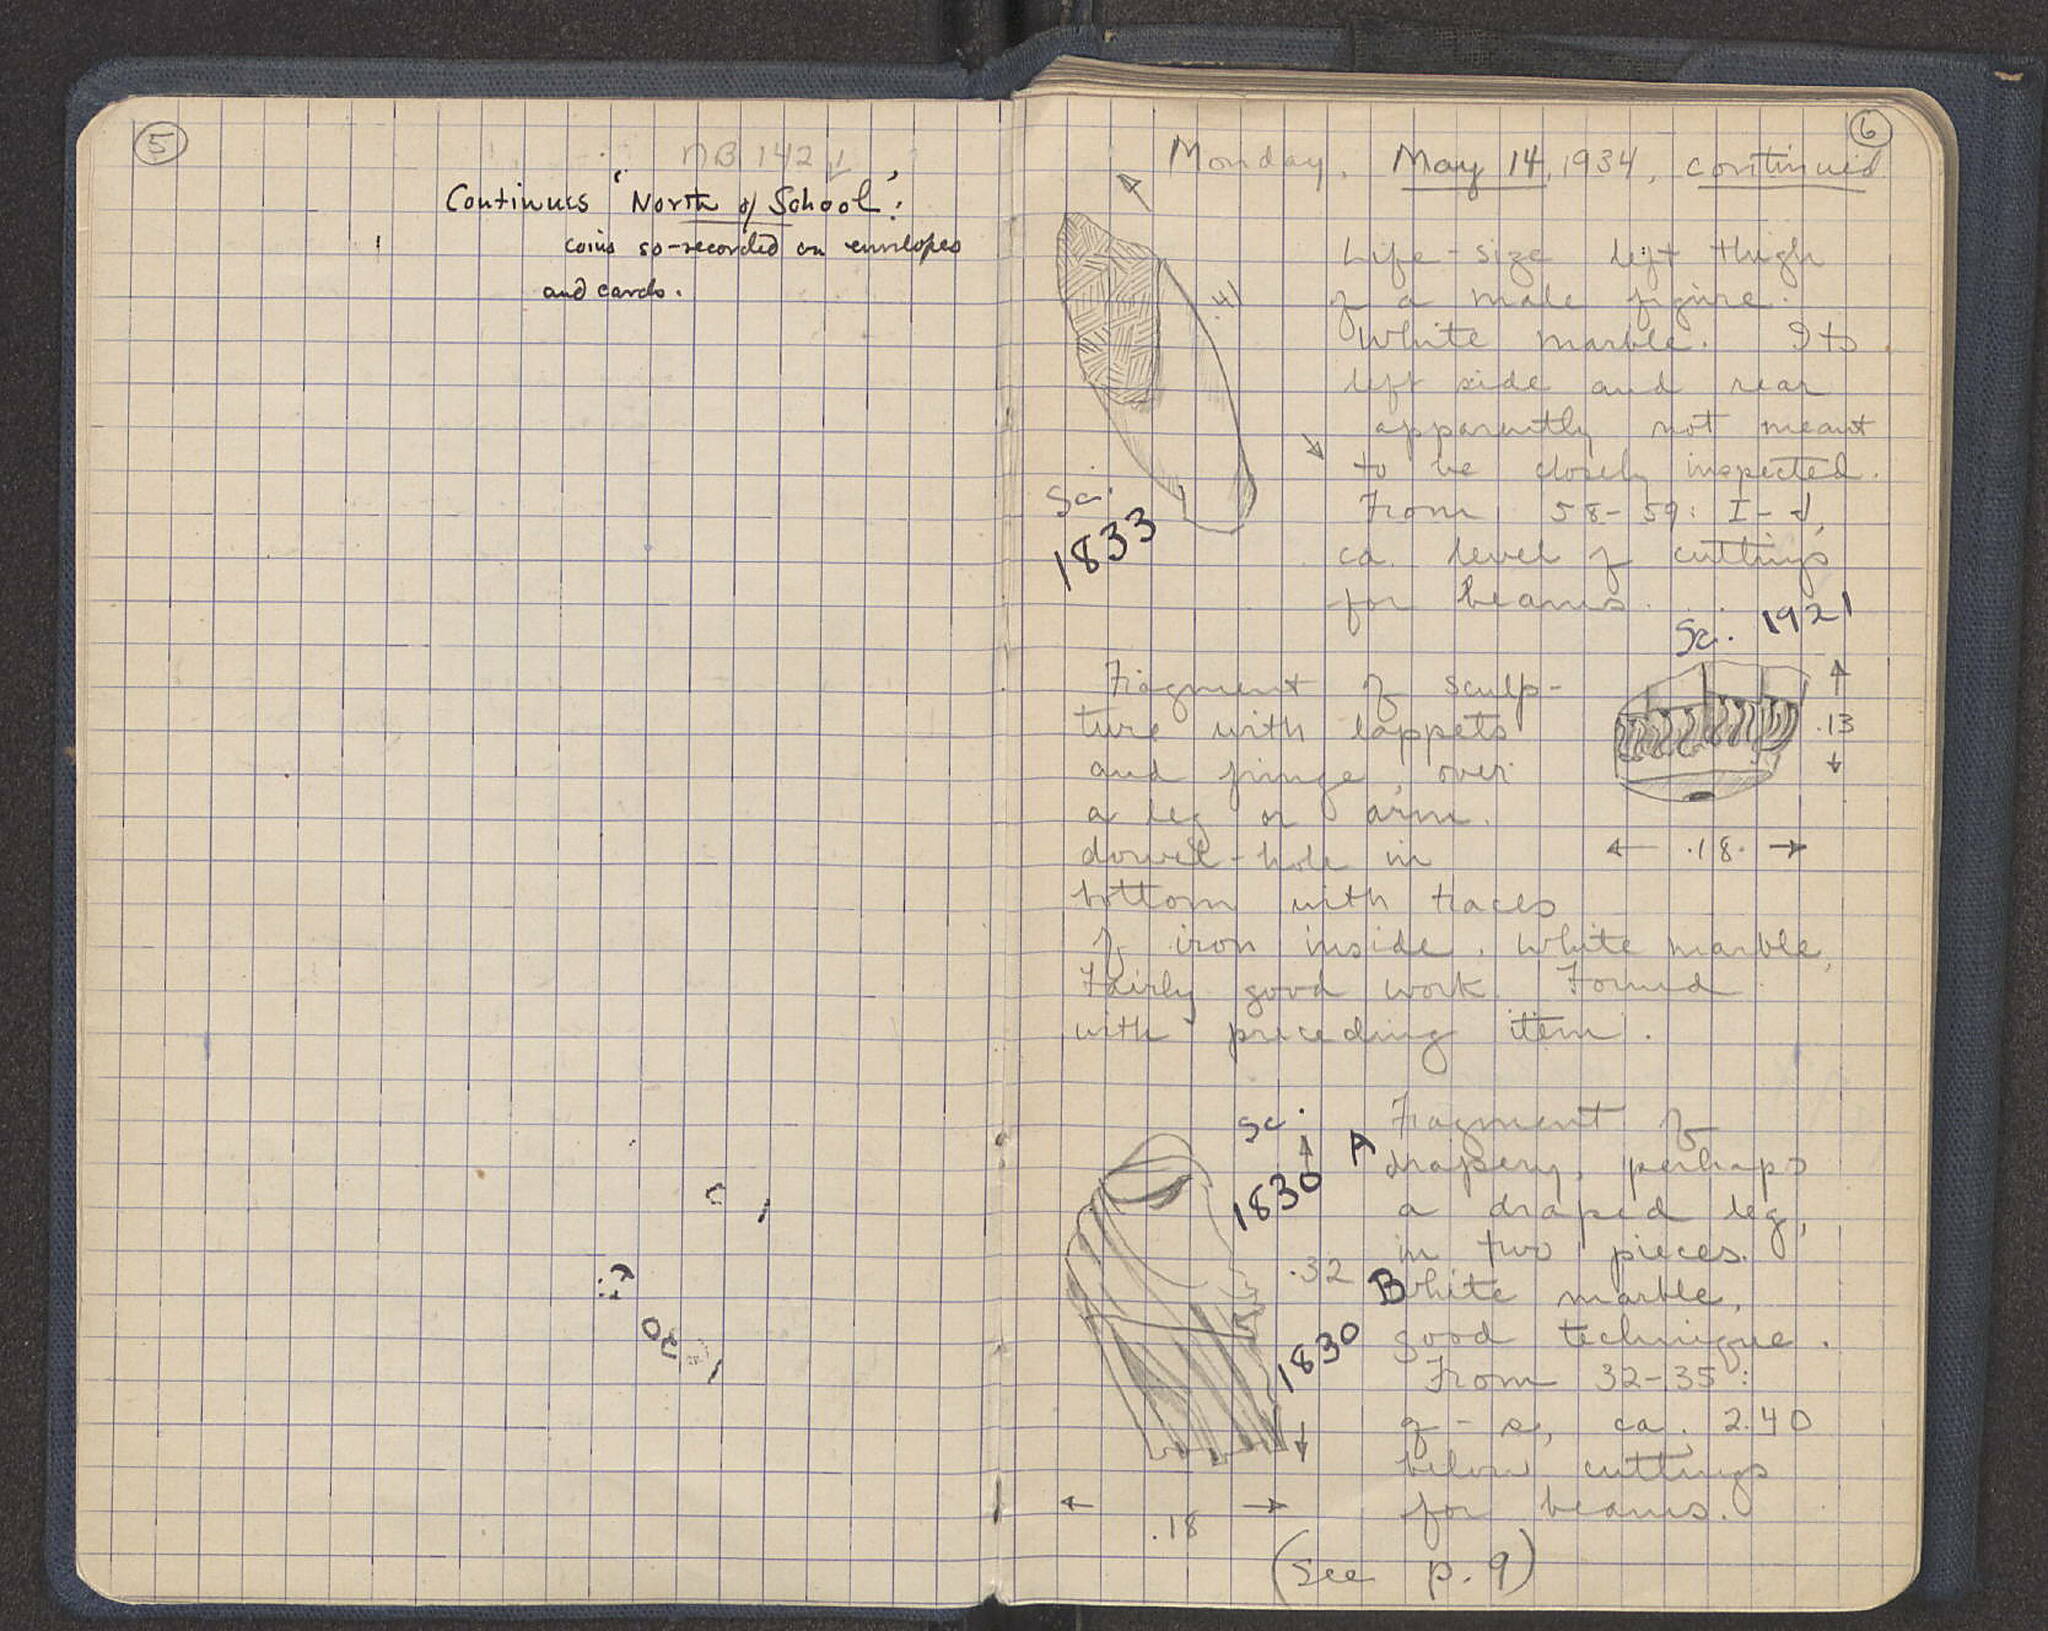 5
NB 142
Continues 'North of School':
coins so-recorded on envelopes
and cards.
6
Monday, May 14, 1934, continued
Life-size left thigh
of a male figure.
White marble. Its
left side and rear
apparently not meant
to be closely inspected.
From 58-59: I-
ca. level of cuttings
for beams.
.41
Sc.
1833
Sc. 1921
Fragment of sculp-
ture with lappets
and fringe, over
a leg or arm.
dowel-hole in
bottom with traces
of iron inside. White marble,
Fairly good work. Found
with preceding item.
.13
.18
Sc.
1830 A
Fragment of
drapery, perhaps
a draped leg,
in two pieces.
White marble,
good technique.
From 32-35:
ca. 2.40
below cuttings
for beams.
.32
B
1830
.18
(see p. 9)